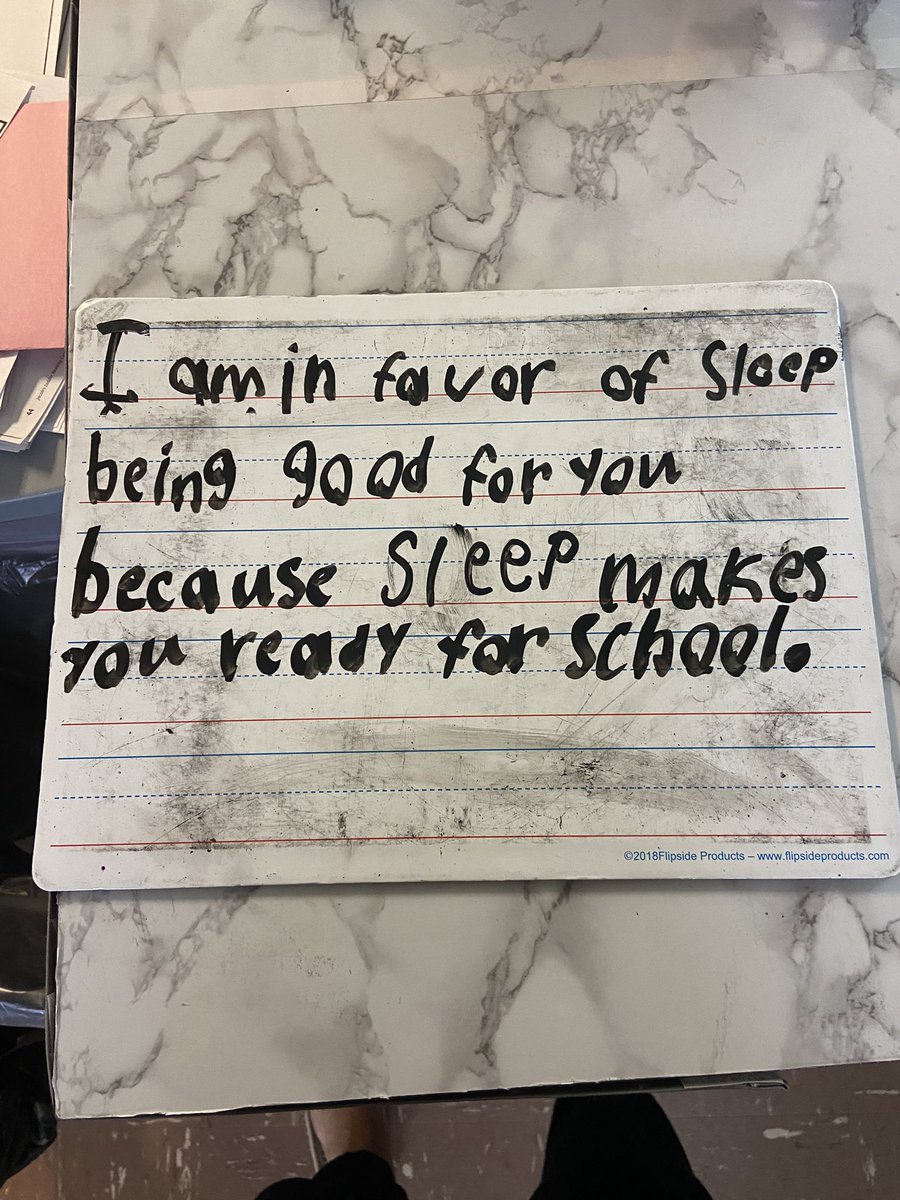 I am in favor of Sleep
being good for you
because Sleep makes
you ready for school.
©2018Flipside Products – www.flipsideproducts.com